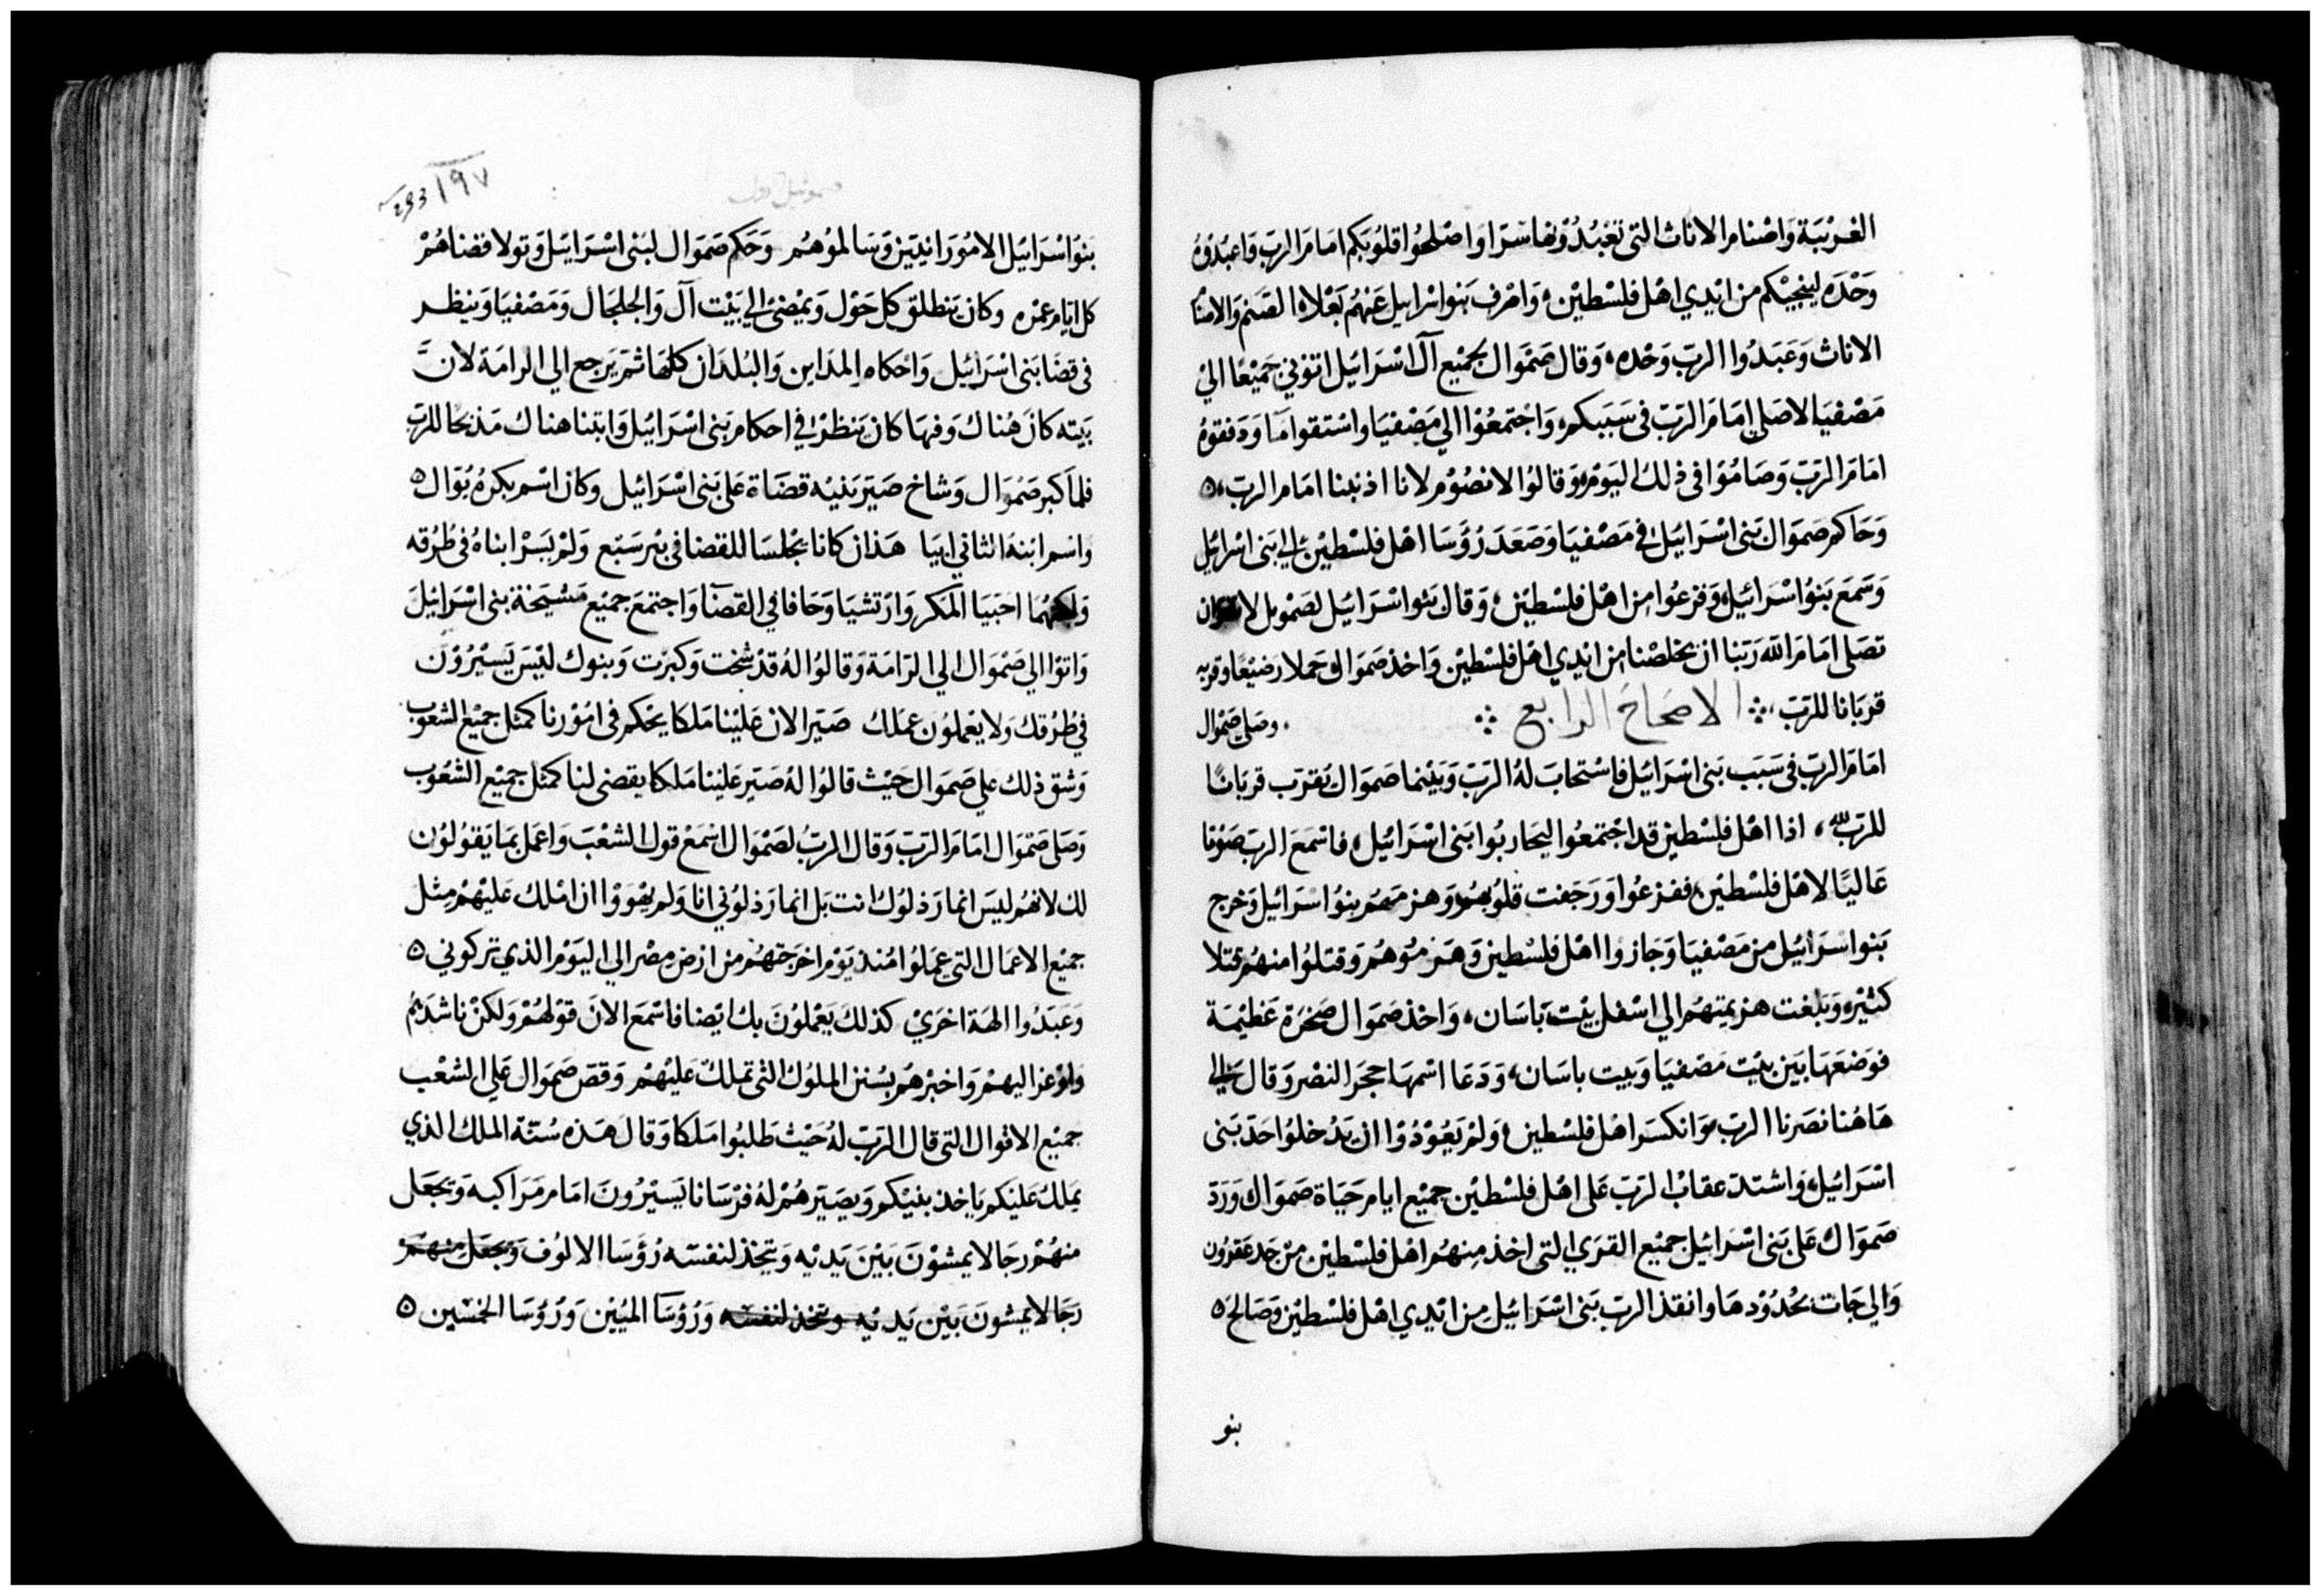 الغريبة واصنام الاناث التى تعبدونها سرا واصلحوا قلوبكم امام الرب واعبدوه
وحده لينجيكم من ايدي اهل فلسطين واصرف بنو اسراييل عنهم بعلاه الصنم والاصنام
الاناث وعبدوا الرب وحده وقال صموال لجميع آل اسرائيل اتوني جميعا الي
مصفيا لاصلي امام الرب فى سببكم واجتمعوا الي مصفيا واستقوا ما ودفقوه
امام الرب وصاموا فى ذلك اليوم وقالوا لانصوم لانا اذنبنا امام الرب
وحاكم صموال بنى اسرائيل في مصفيا وصعد رؤسا اهل فلسطين الي بنى اسرائيل
وسمع بنو اسرائيل وفزعوا من اهل فلسطين وقال بنو اسرائيل لصمويل لا
تصلى امام الله ربنا ان يخلصنا من ايدي اهل فلسطين واخذ صموال حملا رضيعا وقربه
قربانا للرب الاصحاح الرابع وصلى صموال
امام الرب فى سبب بنى اسرائيل فاستجاب له الرب وبينما صموال يقرب قربانا
للرب اذا اهل فلسطين قد اجتمعوا ليحاربوا بنى اسرائيل فاسمع الرب صوتا
عاليا لاهل فلسطين ففزعوا ورجفت قلوبهم وهزمهم بنو اسرائيل وخرج
بنو اسرائيل من مصفيا وجازوا اهل فلسطين وهزموهم وقتلوا منهم قتلا
كثيره وبلغت هزيمتهم الي اسفل بيت باسان واخذ صموال صخرة عظيمة
فوضعها بين بيت مصفيا وبيت باسان ودعا اسمها حجر النصر وقال الي
هاهنا نصرنا الرب وانكسر اهل فلسطين ولم يعودوا ان يدخلوا حد بنى
اسرائيل واشتد عقاب الرب على اهل فلسطين جميع ايام حياة صموال ورد
صموال على بنى اسرائيل جميع القري التى اخذ منهم اهل فلسطين من حد عقرون
والي جات بحدودها وانقذ الرب بنى اسرائيل من ايدي اهل فلسطين وصالح
بنو
١٩٧
293
صموئيل اول
بنو اسرائيل الامورانيين وسالموهم وحكم صموال لبنى اسرائيل وتولا قضاهم
كل ايام عمره وكان ينطلق كل حول ويمضي الي بيت آل والجلجال ومصفيا وينظر
فى قضا بنى اسرائيل واحكام المداين والبلدان كلها ثم يرجع الي الرامة لان
بيته كان هناك وفيها كان ينظر في احكام بنى اسرائيل وابتنا هناك مذبحا للرب
فلما كبر صموال وشاخ صير بنيه قضاة على بنى اسرائيل وكان اسم بكره يوال
واسم ابنه الثاني ابيا هذان كانا يجلسا للقضا فى بير سبع ولم يسر ابناه فى طرقه
ولكنهما احبيا المكر وارتشيا وحافا في القضا واجتمع جميع مشيخة بنى اسرائيل
واتوا الي صموال الي الرامة وقالوا له قد شخت وكبرت وبنوك ليس يسيرون
في طرقك ولا يعملون عملك صير الان علينا ملكا يحكم فى امورنا كمثل جميع الشعوب
وشق ذلك على صموال حيث قالوا له صير علينا ملكا يقضى لنا كمثل جميع الشعوب
وصلى صموال امام الرب وقال الرب لصموال اسمع قول الشعب واعمل بما يقولون
لك لانهم ليس انما رذلوك انت بل انما رذلوني انا ولم يهووا ان املك عليهم مثل
جميع الاعمال التى عملوا منذ يوم اخرجتهم من ارض مصر الي اليوم الذي تركوني
وعبدوا الهة اخري كذلك يعملون بك ايضا فاسمع الان قولهم ولكن ناشدهم
واوعز اليهم واخبرهم بسنن الملوك التى تملك عليهم وقص صموال على الشعب
جميع الاقوال التى قال الرب له حيث طلبوا ملكا وقال هذه سنة الملك الذي
يملك عليكم ياخذ بنيكم ويصيرهم له فرسانا يسيرون امام مراكبه ويجعل
منهم رجالا يمشون بين يديه ويتخذ لنفسه رؤسا الالوف ويجعل منهم
رجالا يمشون بين يديه ويتخذ لنفسه ورؤسا الميين ورؤسا الخمسين